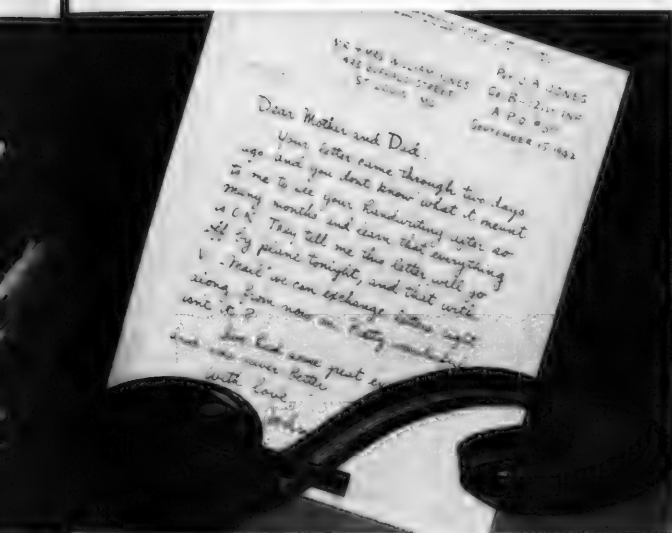 ST LOUIS MO
Pvt J. A. JONES
Co B
A.P.O.
SEPTEMBER 15 1942
Dear Mother and Dad.
Your letter came through two days
ago and you dont know what it meant
to me to see your handwriting after so
many months and learn that everything
is O.K. They tell me this letter will go
off by plane tonight, and that with
V-Mail we can exchange letters right
along from now on. Pretty
isn't it?
some
never better
With love
John